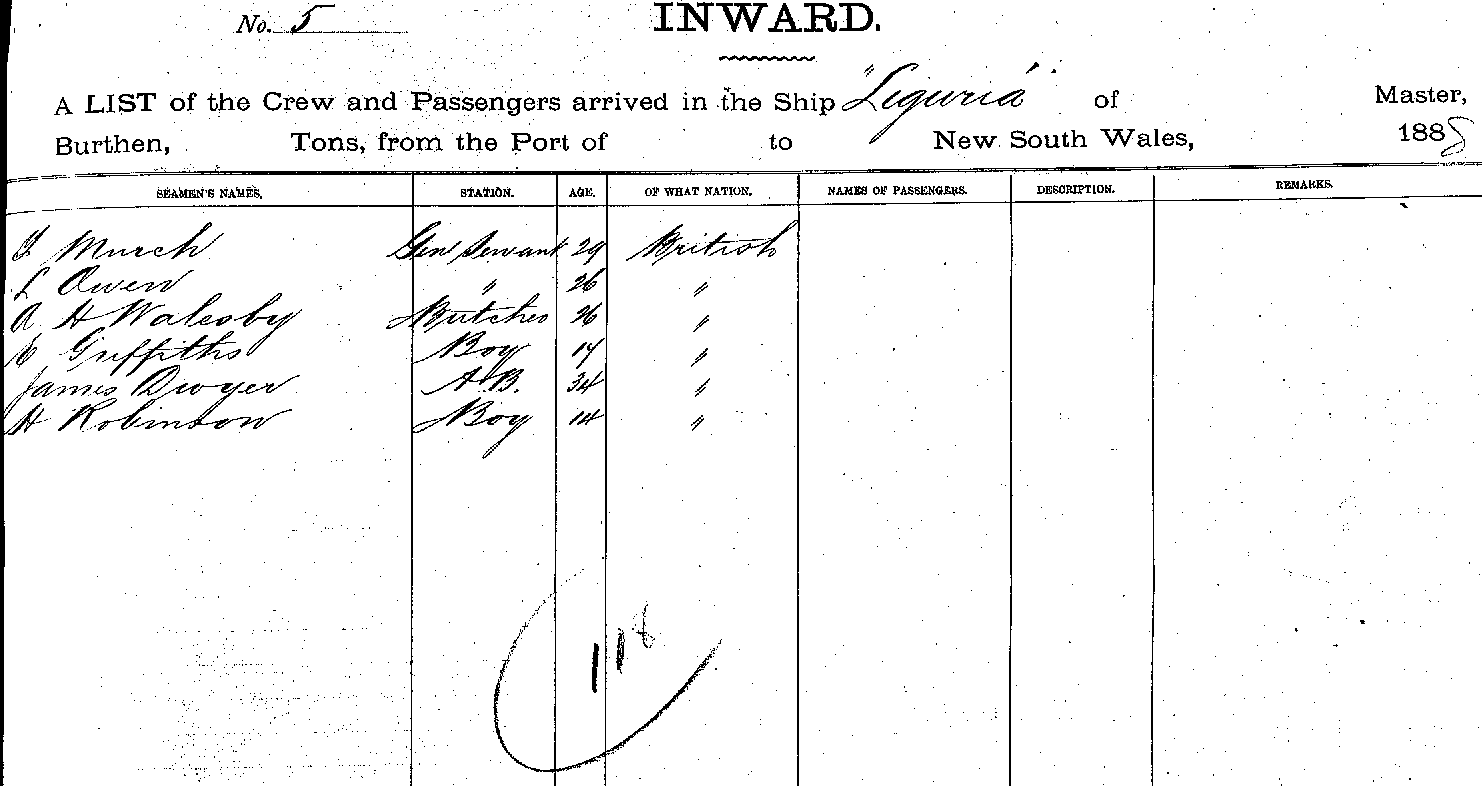 No. 5
INWARD.
A LIST of the Crew and Passengers arrived in the Ship "Liguria" of Master,
Burthen, Tons, from the Port of to New South Wales, 1888
SEAMEN'S NAMES. STATION. AGE. OF WHAT NATION. NAMES OF PASSENGERS. DESCRIPTION. REMARKS.
Murch Gen Servant 29 British
L Owen " 26 "
A H Walesby Butcher 26 "
E Griffiths Boy 17 "
James Dwyer A.B. 34 "
H Robinson Boy 14 "
118